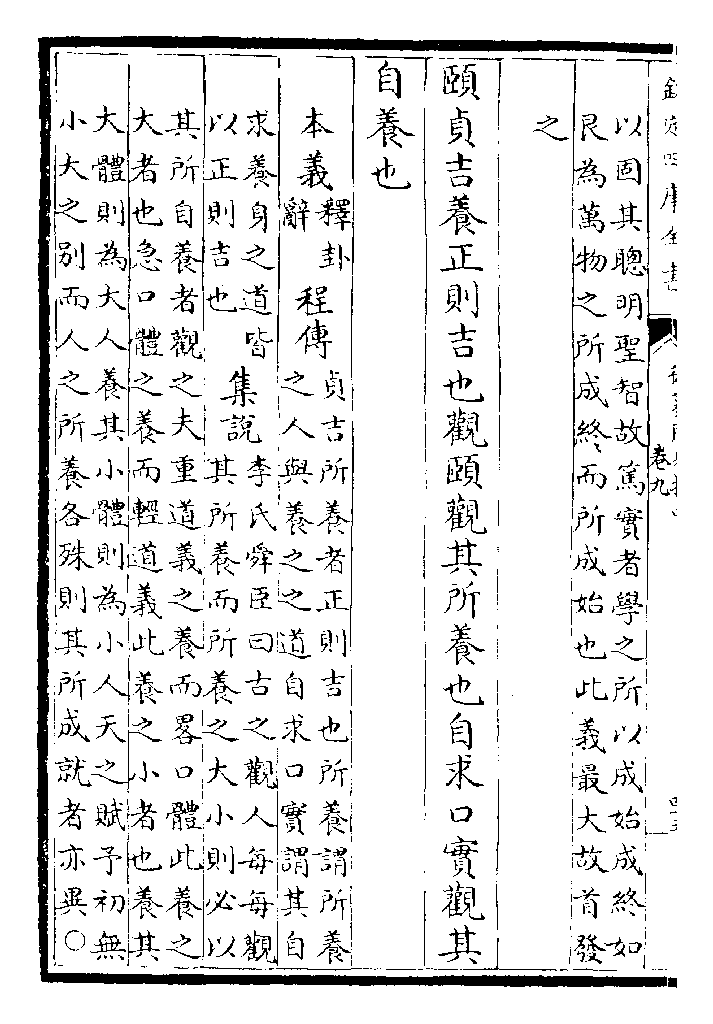 欽定四庫全書
卷九
以固其聰明聖智故篤實者學之所以成始成終如
艮為萬物之所成終而所成始也此義最大故首發
之
頤貞吉養正則吉也觀頤觀其所養也自求口實觀其
自養也
本義釋卦
辭
程傳貞吉所養者正則吉也所養謂所養
之人與養之之道自求口實謂其自
求養身之道皆
以正則吉也
集說李氏舜臣曰古之觀人每每觀
其所養而所養之大小則必以
其所自養者觀之夫重道義之養而畧口體此養之
大者也急口體之養而輕道義此養之小者也養其
大體則為大人養其小體則為小人天之賦予初無
小大之別而人之所養各殊則其所成就者亦異○